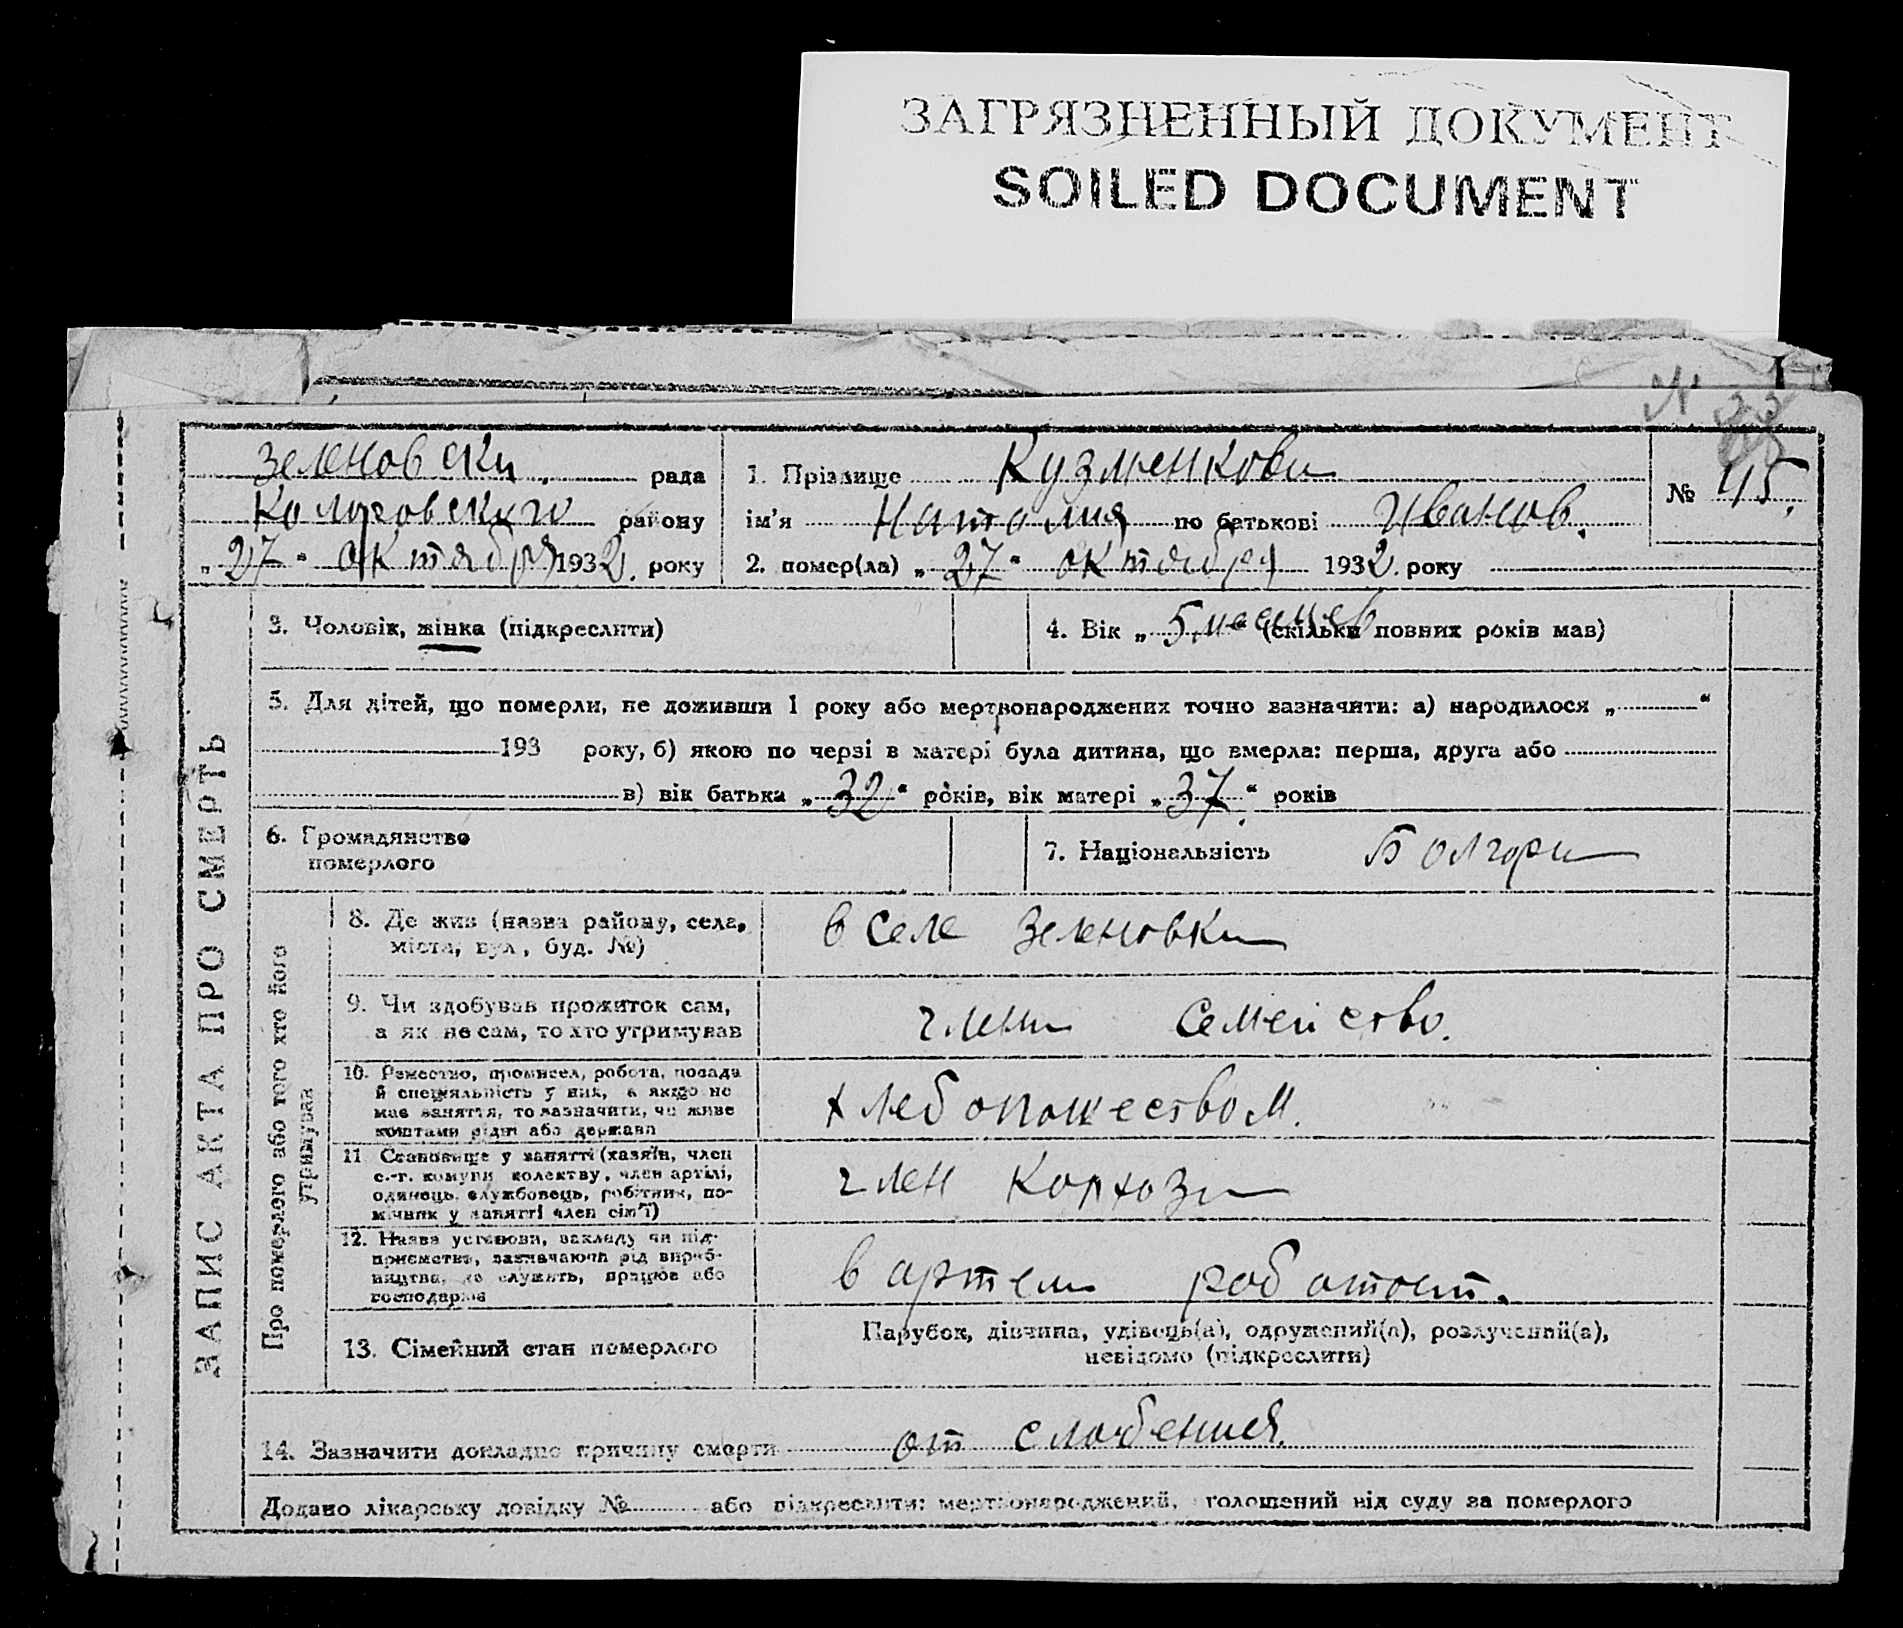 ЗАГРЯЗНЕННЫЙ ДОКУМЕНТ
SOILED DOCUMENT
N 33
Зеленовски рада
району
„27“ октября 1932. року
1. Прізвище Кузменкова
ім’я Наталия по батькові Иванов.
2. помер(ла) „27“ октября 1932. року
№ 45.
ЗАПИС АКТА ПРО СМЕРТЬ
3. Чоловік, жінка (підкреслити)
4. Вік „5 месяцев“ (скільки повних років мав)
5. Для дітей, що померли, не доживши 1 року або мертвонароджених точно зазначити: а) народилося „ “
193 року, б) якою по черзі в матері була дитина, що вмерла: перша, друга або
в) вік батька „32“ років, вік матері „37“ років
6. Громадянство
померлого
7. Національність Болгари
Про померлого або того хто його
утримував
8. Де жив (назва району, села,
міста, вул, буд. №)
в селе Зеленовки
9. Чи здобував прожиток сам,
а як не сам, то хто утримував
члени семейство.
10. Ремество, промисел, робота, посада
й спеціяльність у них, а якщо не
має заняття, то зазначити, чи живе
коштами рідні або держави
хлебопашеством.
11. Становище у занятті (хазяїн, член
с.-г. комуни колективу, член артілі,
одинець, службовець, робітник, по-
мічник у занятті член сім’ї)
член колхоза
12. Назва установи, закладу чи під-
приємства, зазначаючи рід вироб-
ництва, де служить, працює або
господарює
в артели работает.
13. Сімейний стан померлого
Парубок, дівчина, удівець(а), одружений(а), розлучений(а),
невідомо (підкреслити)
14. Зазначити докладно причину смерти от слабения.
Додано лікарську довідку № або підкреслити: мертвонароджений, оголошений від суду за померлого